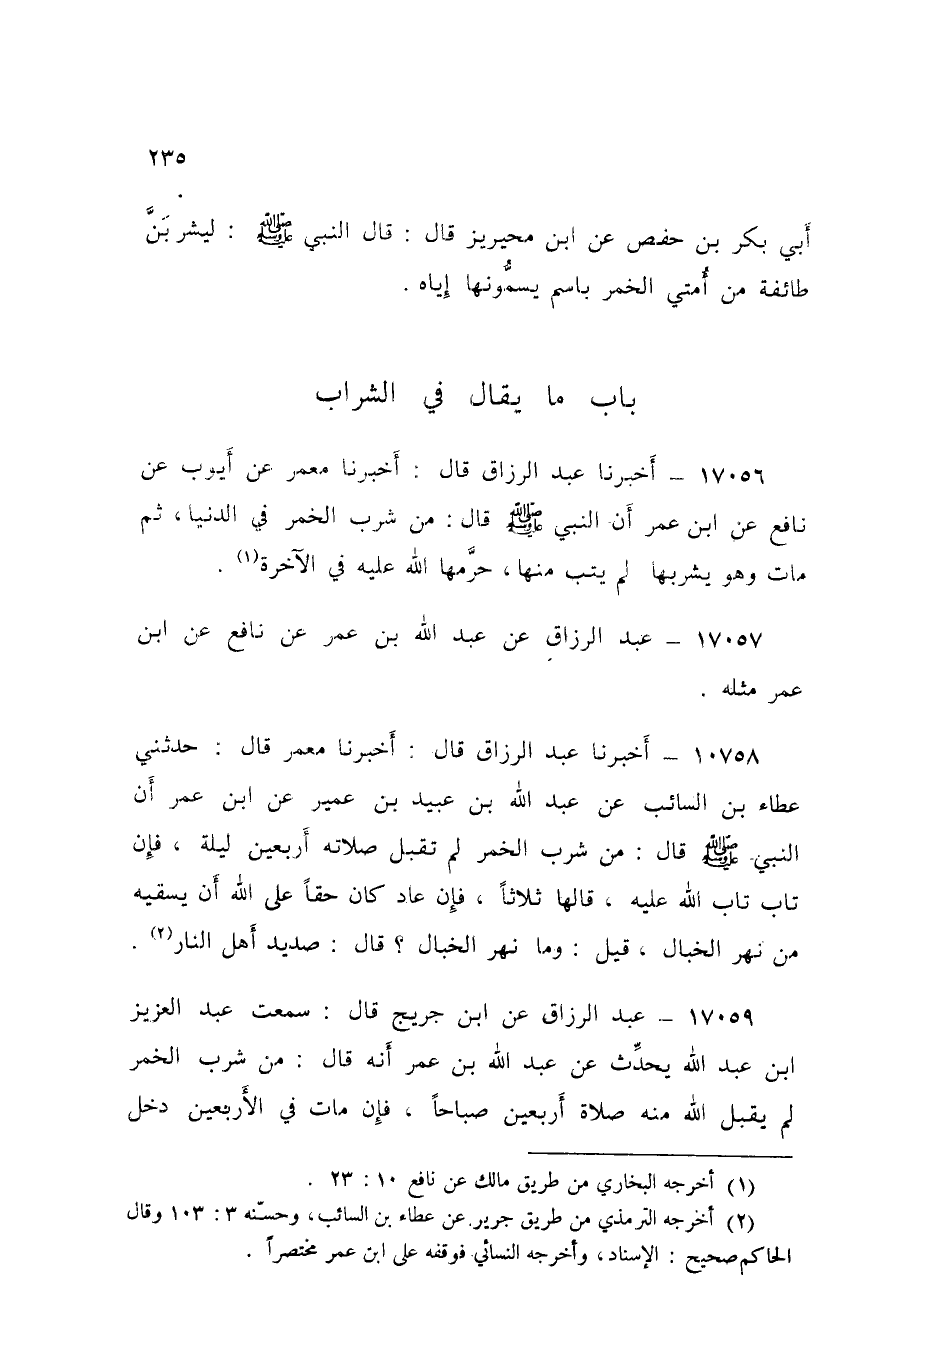 ٢٣٥
أبي بكر بن حفص عن ابن محيريز قال : قال النبي ﷺ : ليشربَنَّ
طائفة من أُمتي الخمر باسم يسمُّونها إياه .
باب ما يقال في الشراب
١٧٠٥٦ – أَخبرنا عبد الرزاق قال : أَخبرنا معمر عن أَيوب عن
نافع عن ابن عمر أَن النبي ﷺ قال : من شرب الخمر في الدنيا ، ثم
مات وهو يشربها لم يتب منها ، حرَّمها الله عليه في الآخرة(١) .
١٧٠٥٧ – عبد الرزاق عن عبد الله بن عمر عن نافع عن ابن
عمر مثله .
١٠٧٥٨ – أَخبرنا عبد الرزاق قال : أَخبرنا معمر قال : حدثني
عطاء بن السائب عن عبد الله بن عبيد بن عمير عن ابن عمر أَن
النبي ﷺ قال : من شرب الخمر لم تقبل صلاته أَربعين ليلة ، فإن
تاب تاب الله عليه ، قالها ثلاثاً ، فإن عاد كان حقاً على الله أَن يسقيه
من نهر الخبال ، قيل : وما نهر الخبال ؟ قال : صديد أَهل النار(٢) .
١٧٠٥٩ – عبد الرزاق عن ابن جريج قال : سمعت عبد العزيز
ابن عبد الله يحدِّث عن عبد الله بن عمر أَنه قال : من شرب الخمر
لم يقبل الله منه صلاة أَربعين صباحاً ، فإن مات في الأَربعين دخل
(١) أخرجه البخاري من طريق مالك عن نافع ١٠ : ٢٣ .
(٢) أخرجه الترمذي من طريق جرير عن عطاء بن السائب ، وحسّنه ٣ : ١٠٣ وقال
الحاكم صحيح : الإسناد ، وأخرجه النسائي فوقفه على ابن عمر مختصراً .